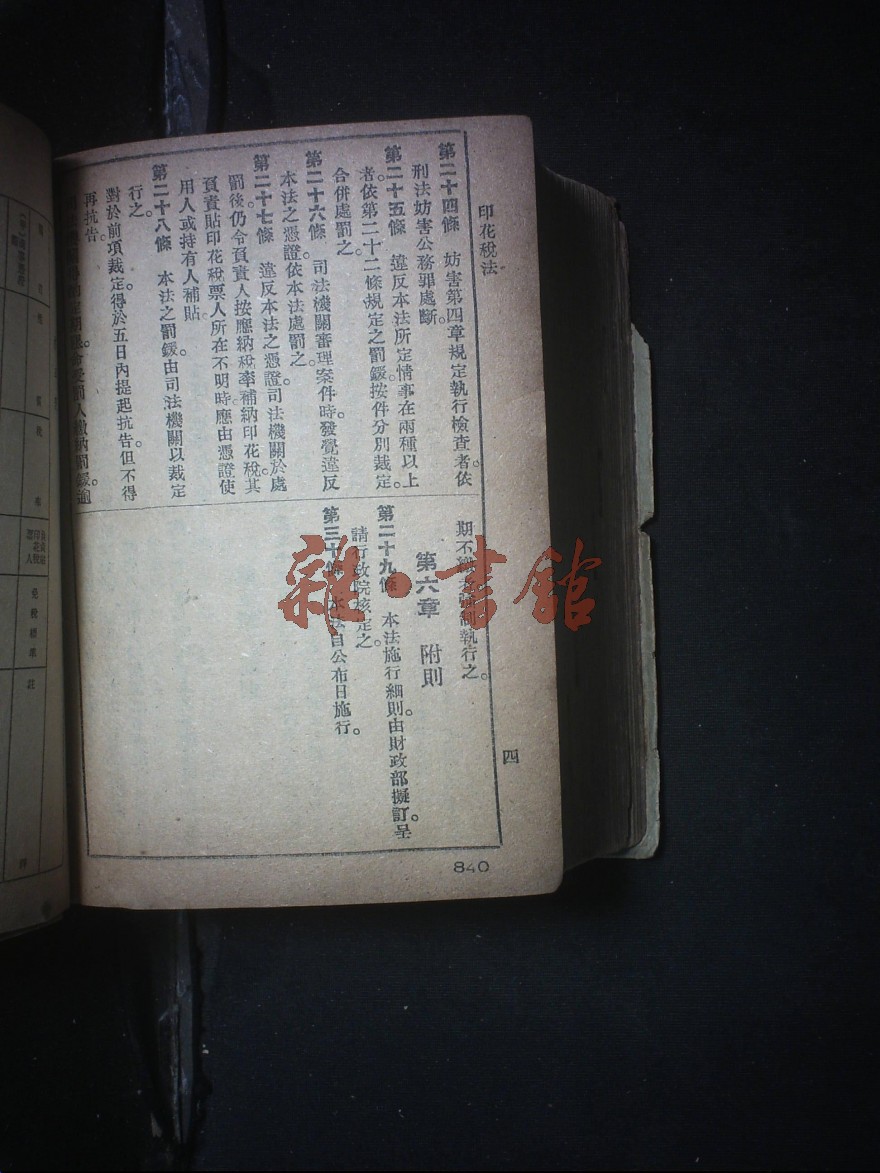 印花稅法
第二十四條　妨害第四章規定執行檢查者。依
刑法妨害公務罪處斷。
第二十五條　違反本法所定情事在兩種以上
者。依第二十二條規定之罰鍰按件分別裁定。
合併處罰之。
第二十六條　司法機關審理案件時。發覺違反
本法之憑證。依本法處罰之。
第二十七條　違反本法之憑證。司法機關於處
罰後。仍令負責人按應納稅率補納印花稅。其
負責貼印花稅票人所在不明時。應由憑證使
用人或持有人補貼。
第二十八條　本法之罰鍰。由司法機關以裁定
行之。
對於前項裁定。得於五日內提起抗告。但不得
再抗告。
受罰人繳納罰鍰。逾
期不繳者。強制執行之。
第六章　附則
第二十九條　本法施行細則。由財政部擬訂。呈
請行政院核定之。
第三十條　本法自公布日施行。
四
840
雜·書館